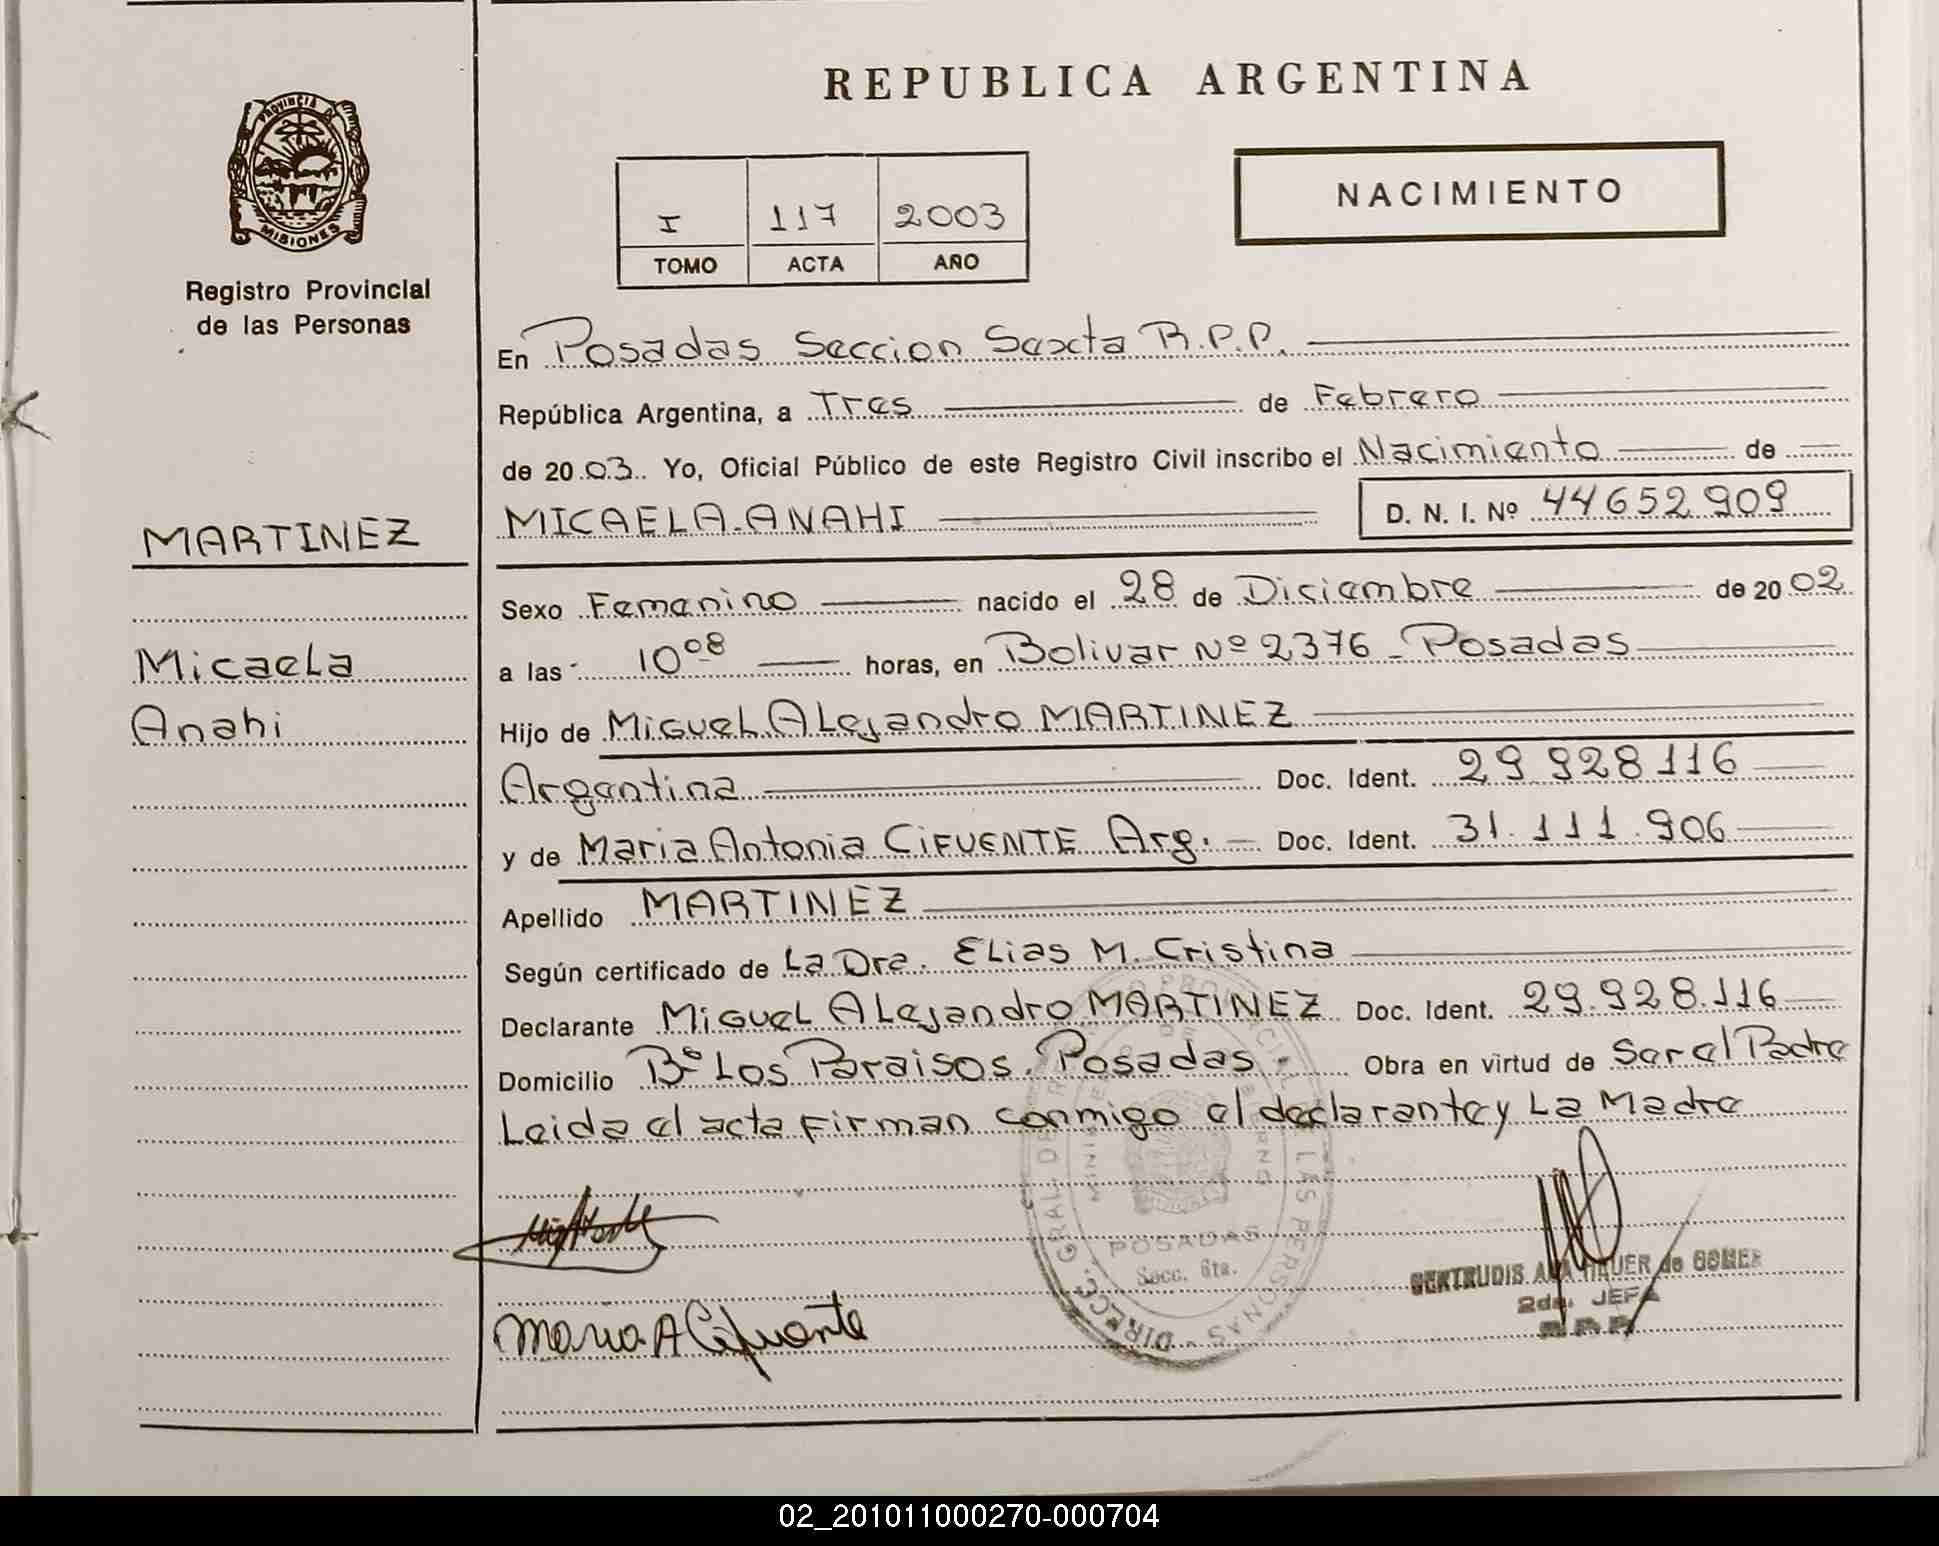 REPUBLICA ARGENTINA
PROVINCIA DE
MISIONES
Registro Provincial
de las Personas
I 117 2003
TOMO ACTA AÑO
NACIMIENTO
En Posadas Seccion Sexta R.P.P.
República Argentina, a Tres de Febrero
de 20 03 Yo, Oficial Público de este Registro Civil inscribo el Nacimiento de
MICAELA ANAHI D. N. I. Nº 44652909
MARTINEZ
Micaela
Anahi
Sexo Femenino nacido el 28 de Diciembre de 20 02
a las 10 08 horas, en Bolivar Nº 2376 - Posadas
Hijo de Miguel Alejandro MARTINEZ
Argentina Doc. Ident. 29 928 116
y de Maria Antonia CIFUENTE Arg. - Doc. Ident. 31.111.906
Apellido MARTINEZ
Según certificado de La Dra. Elias M. Cristina
Declarante Miguel Alejandro MARTINEZ Doc. Ident. 29.928.116
Domicilio Bº Los Paraisos. Posadas - Obra en virtud de Ser el Padre
Leida el acta firman conmigo el declarante y La Madre
DIRECC. GRAL. DE LAS PERSONAS
POSADAS
Secc. 6ta.
Maria A Cifuente
GERTRUDIS de GOMEZ
2da. JEFA
02_201011000270-000704